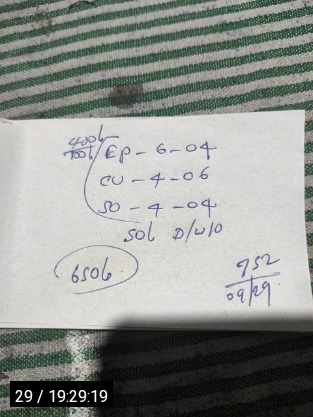 400L
700L EP - 6 - 04
CU - 4 - 06
SO - 4 - 04
50L D/W/O
650L
952
09/29
29 / 19:29:19